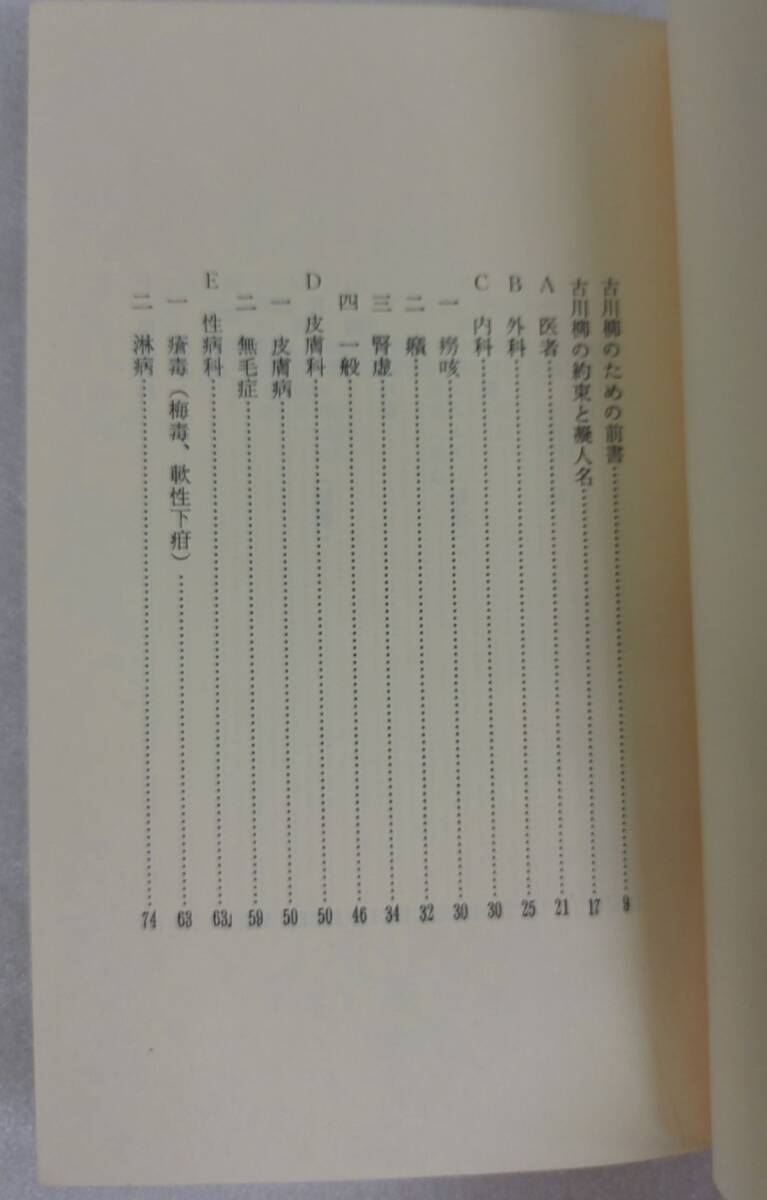 古川柳のための前書……………………9
古川柳の約束と擬人名……………………17
A 医者……………………21
B 外科……………………25
C 内科……………………30
一 癆咳……………………30
二 癪……………………32
三 腎虚……………………34
四 一般……………………46
D 皮膚科……………………50
一 皮膚病……………………50
二 無毛症……………………59
E 性病科……………………63
一 瘡毒(梅毒、軟性下疳)……………………63
二 淋病……………………74